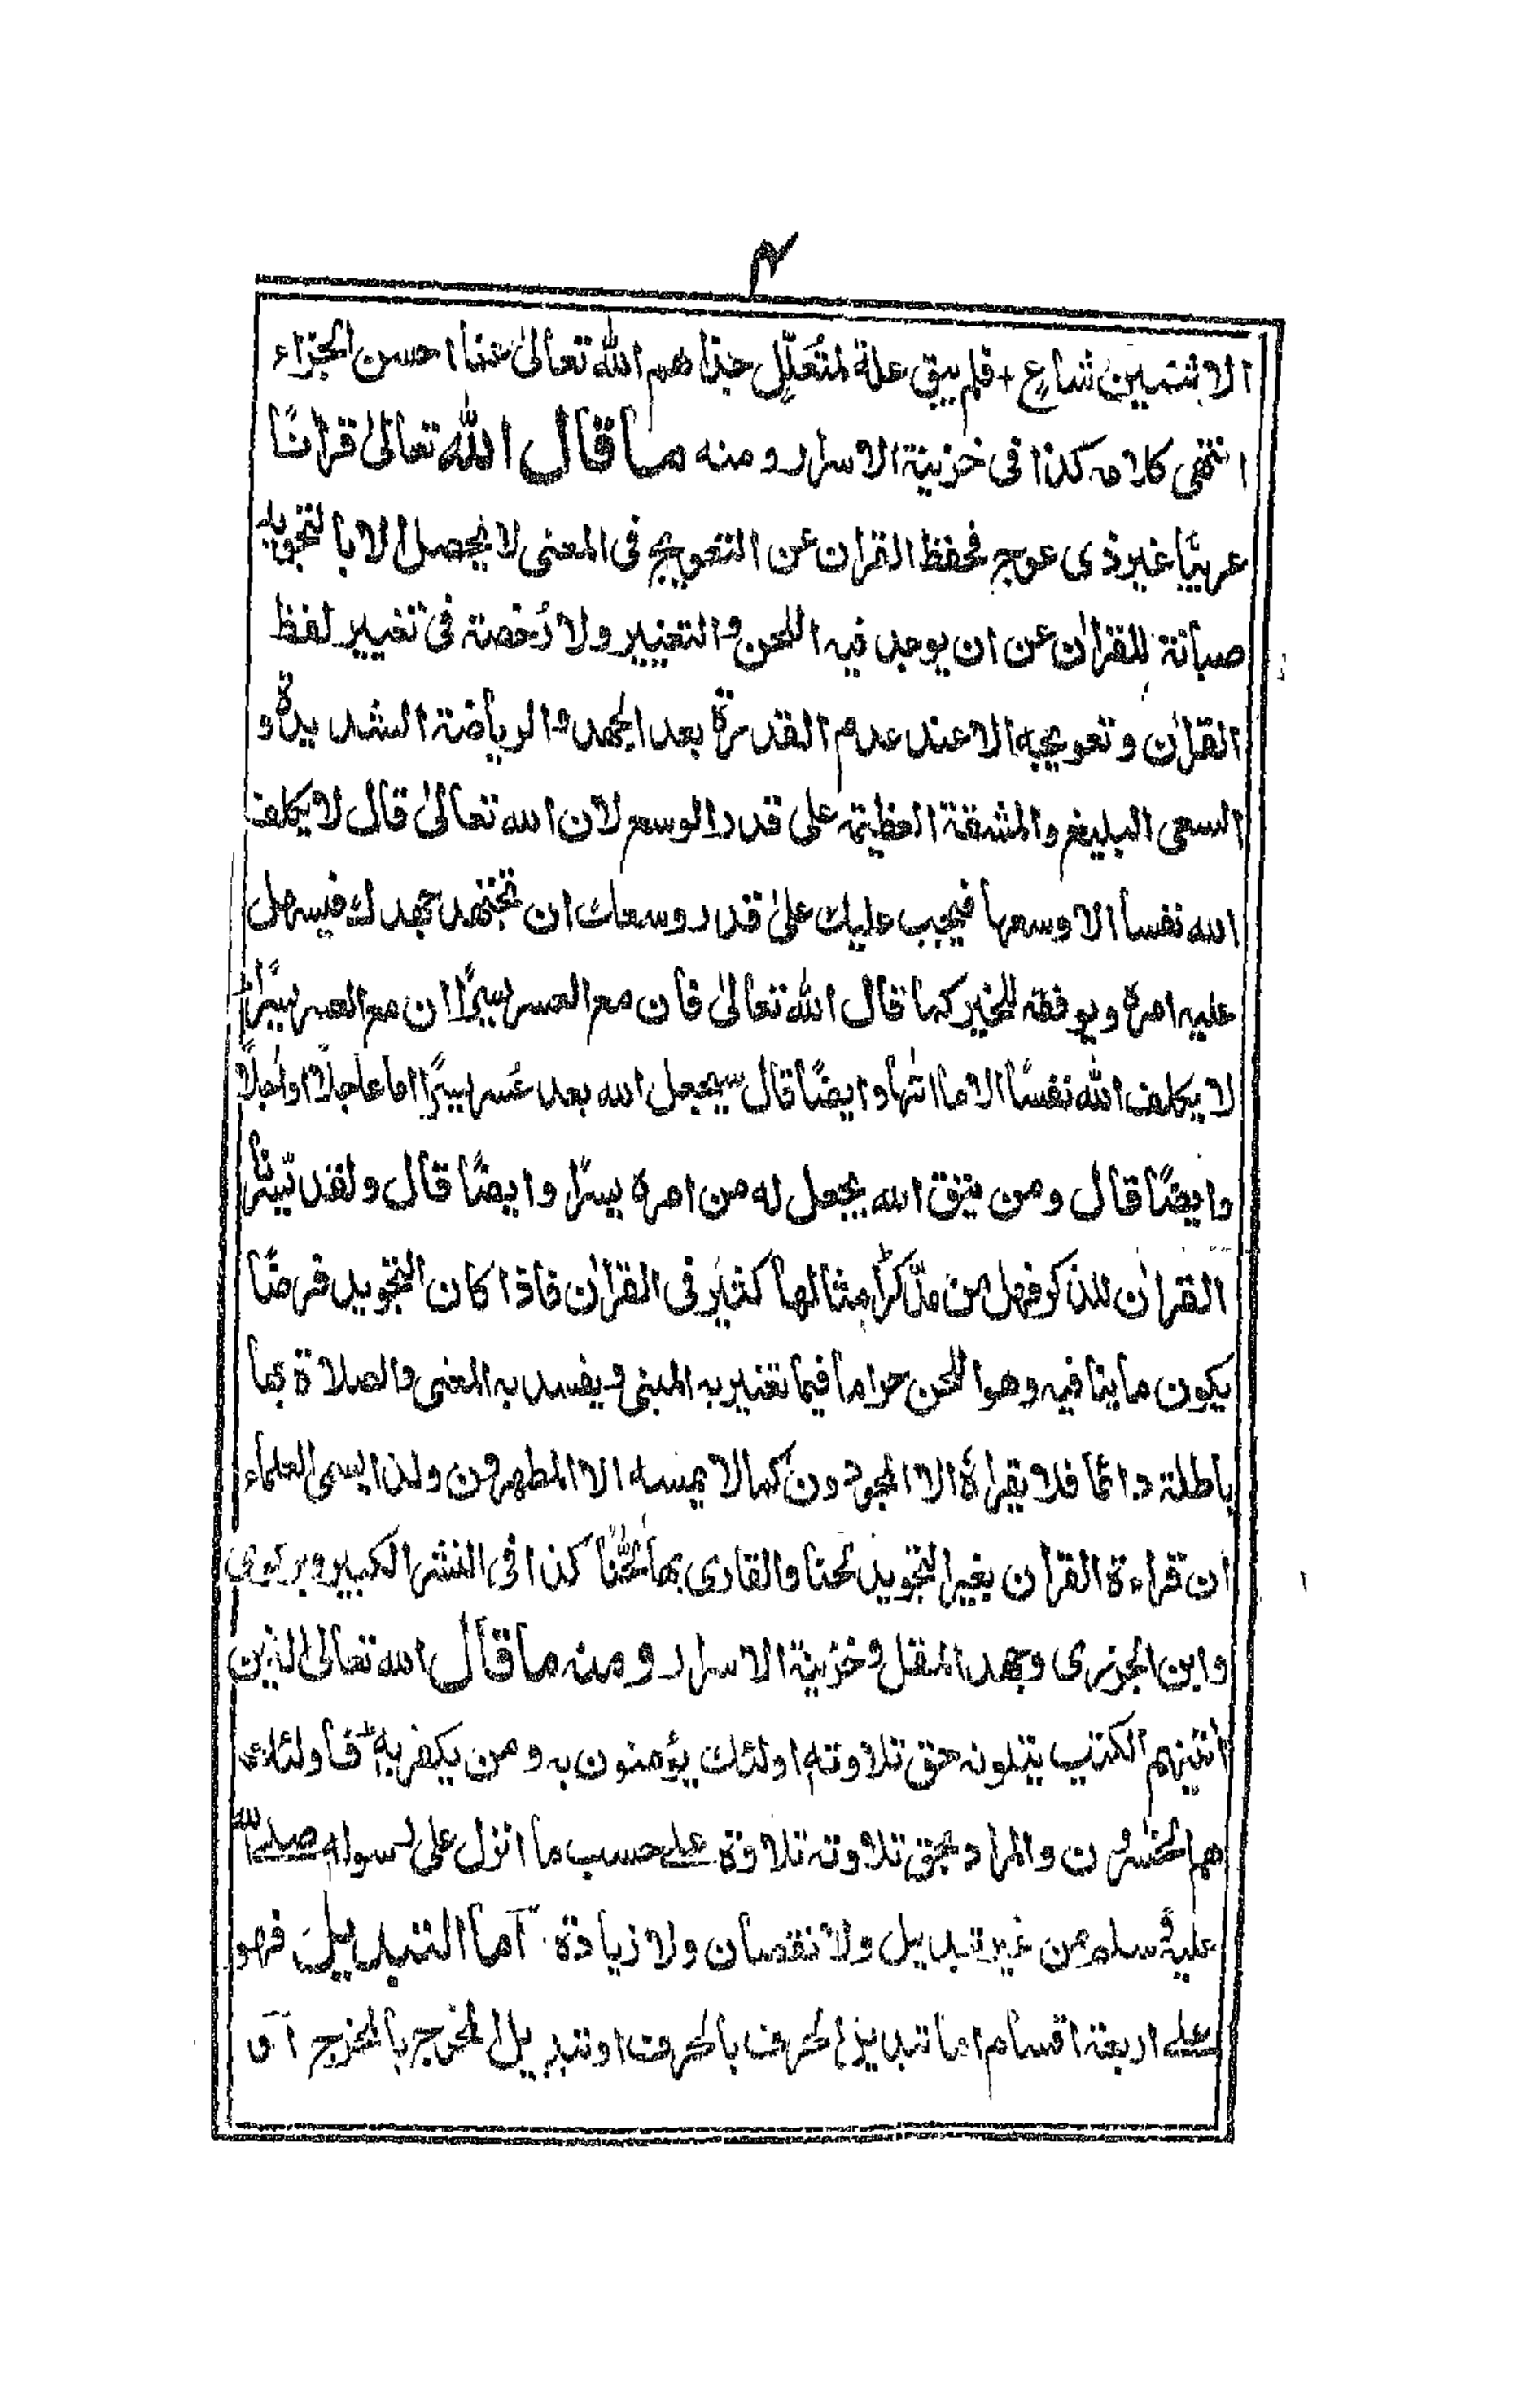 ۴
الاثنين شاع + فلم يبق علة لمتعلّلٍ جزاهم الله تعالىٰ عنا احسن الجزاء
انتهى كلامه كذا فى خزينة الاسرار و منه ما قال الله تعالىٰ قرانًا
عربيًا غير ذى عوج فحفظ القران عن التعويج فى المعنى لا يحصل الا بالتجويد
صيانة للقران عن ان يوجد فيه اللحن والتغيير ولا رُخصة فى تغيير لفظ
القران وتعويجه الا عند عدم القدرة بعد الجهد والرياضة الشديدة و
السعى البليغ والمشقة العظيمة على قدر الوسع لان الله تعالىٰ قال لا يكلف
الله نفسا الا وسعها فيجب عليك علىٰ قدر وسعك ان تجتهد جهدك فيسهل
عليه امره ويوفقه للخير كما قال الله تعالىٰ فان مع العسر يسرًا ان مع العسر يسرًا
لا يكلف الله نفسًا الا ما اٰتٰها وايضًا قال سيجعل الله بعد عُسر يسرًا اما عاجلًا او اٰجلًا
وايضًا قال ومن يتق الله يجعل له من امره يسرًا وايضًا قال ولقد يسّرنا
القراٰن للذكر فهل من مدّكر امثالها كثير فى القراٰن فاذا كان التجويد فرضًا
يكون ما ينافيه وهو اللحن حراما فيما تغير به المبنى ويفسد به المعنى والصلاة بها
باطلة دائما فلا يقراه الا المجودون كما لا يمسه الا المطهرون ولذا يسمى العلماء
ان قراءة القران بغير التجويد لحنا والقارى بها لحّانًا كذا فى النشر الكبير وبركوى
وابن الجزرى وجهد المقل وخزينة الاسرار و منه ما قال الله تعالىٰ الذين
اٰتينهم الكتٰب يتلونه حق تلاوته اولئك يؤمنون به و من يكفر به فاولئك
هم الخٰسرون والمراد بحق تلاوته تلاوة علے حسب ما انزل على رسوله صلے الله
عليه و سلم من غير تبديل ولا نقصان ولا زيادة اما التبديل فهو
علے اربعة اقسام اما تبديل الحرف بالحرف او تبديل المخرج بالمخرج او